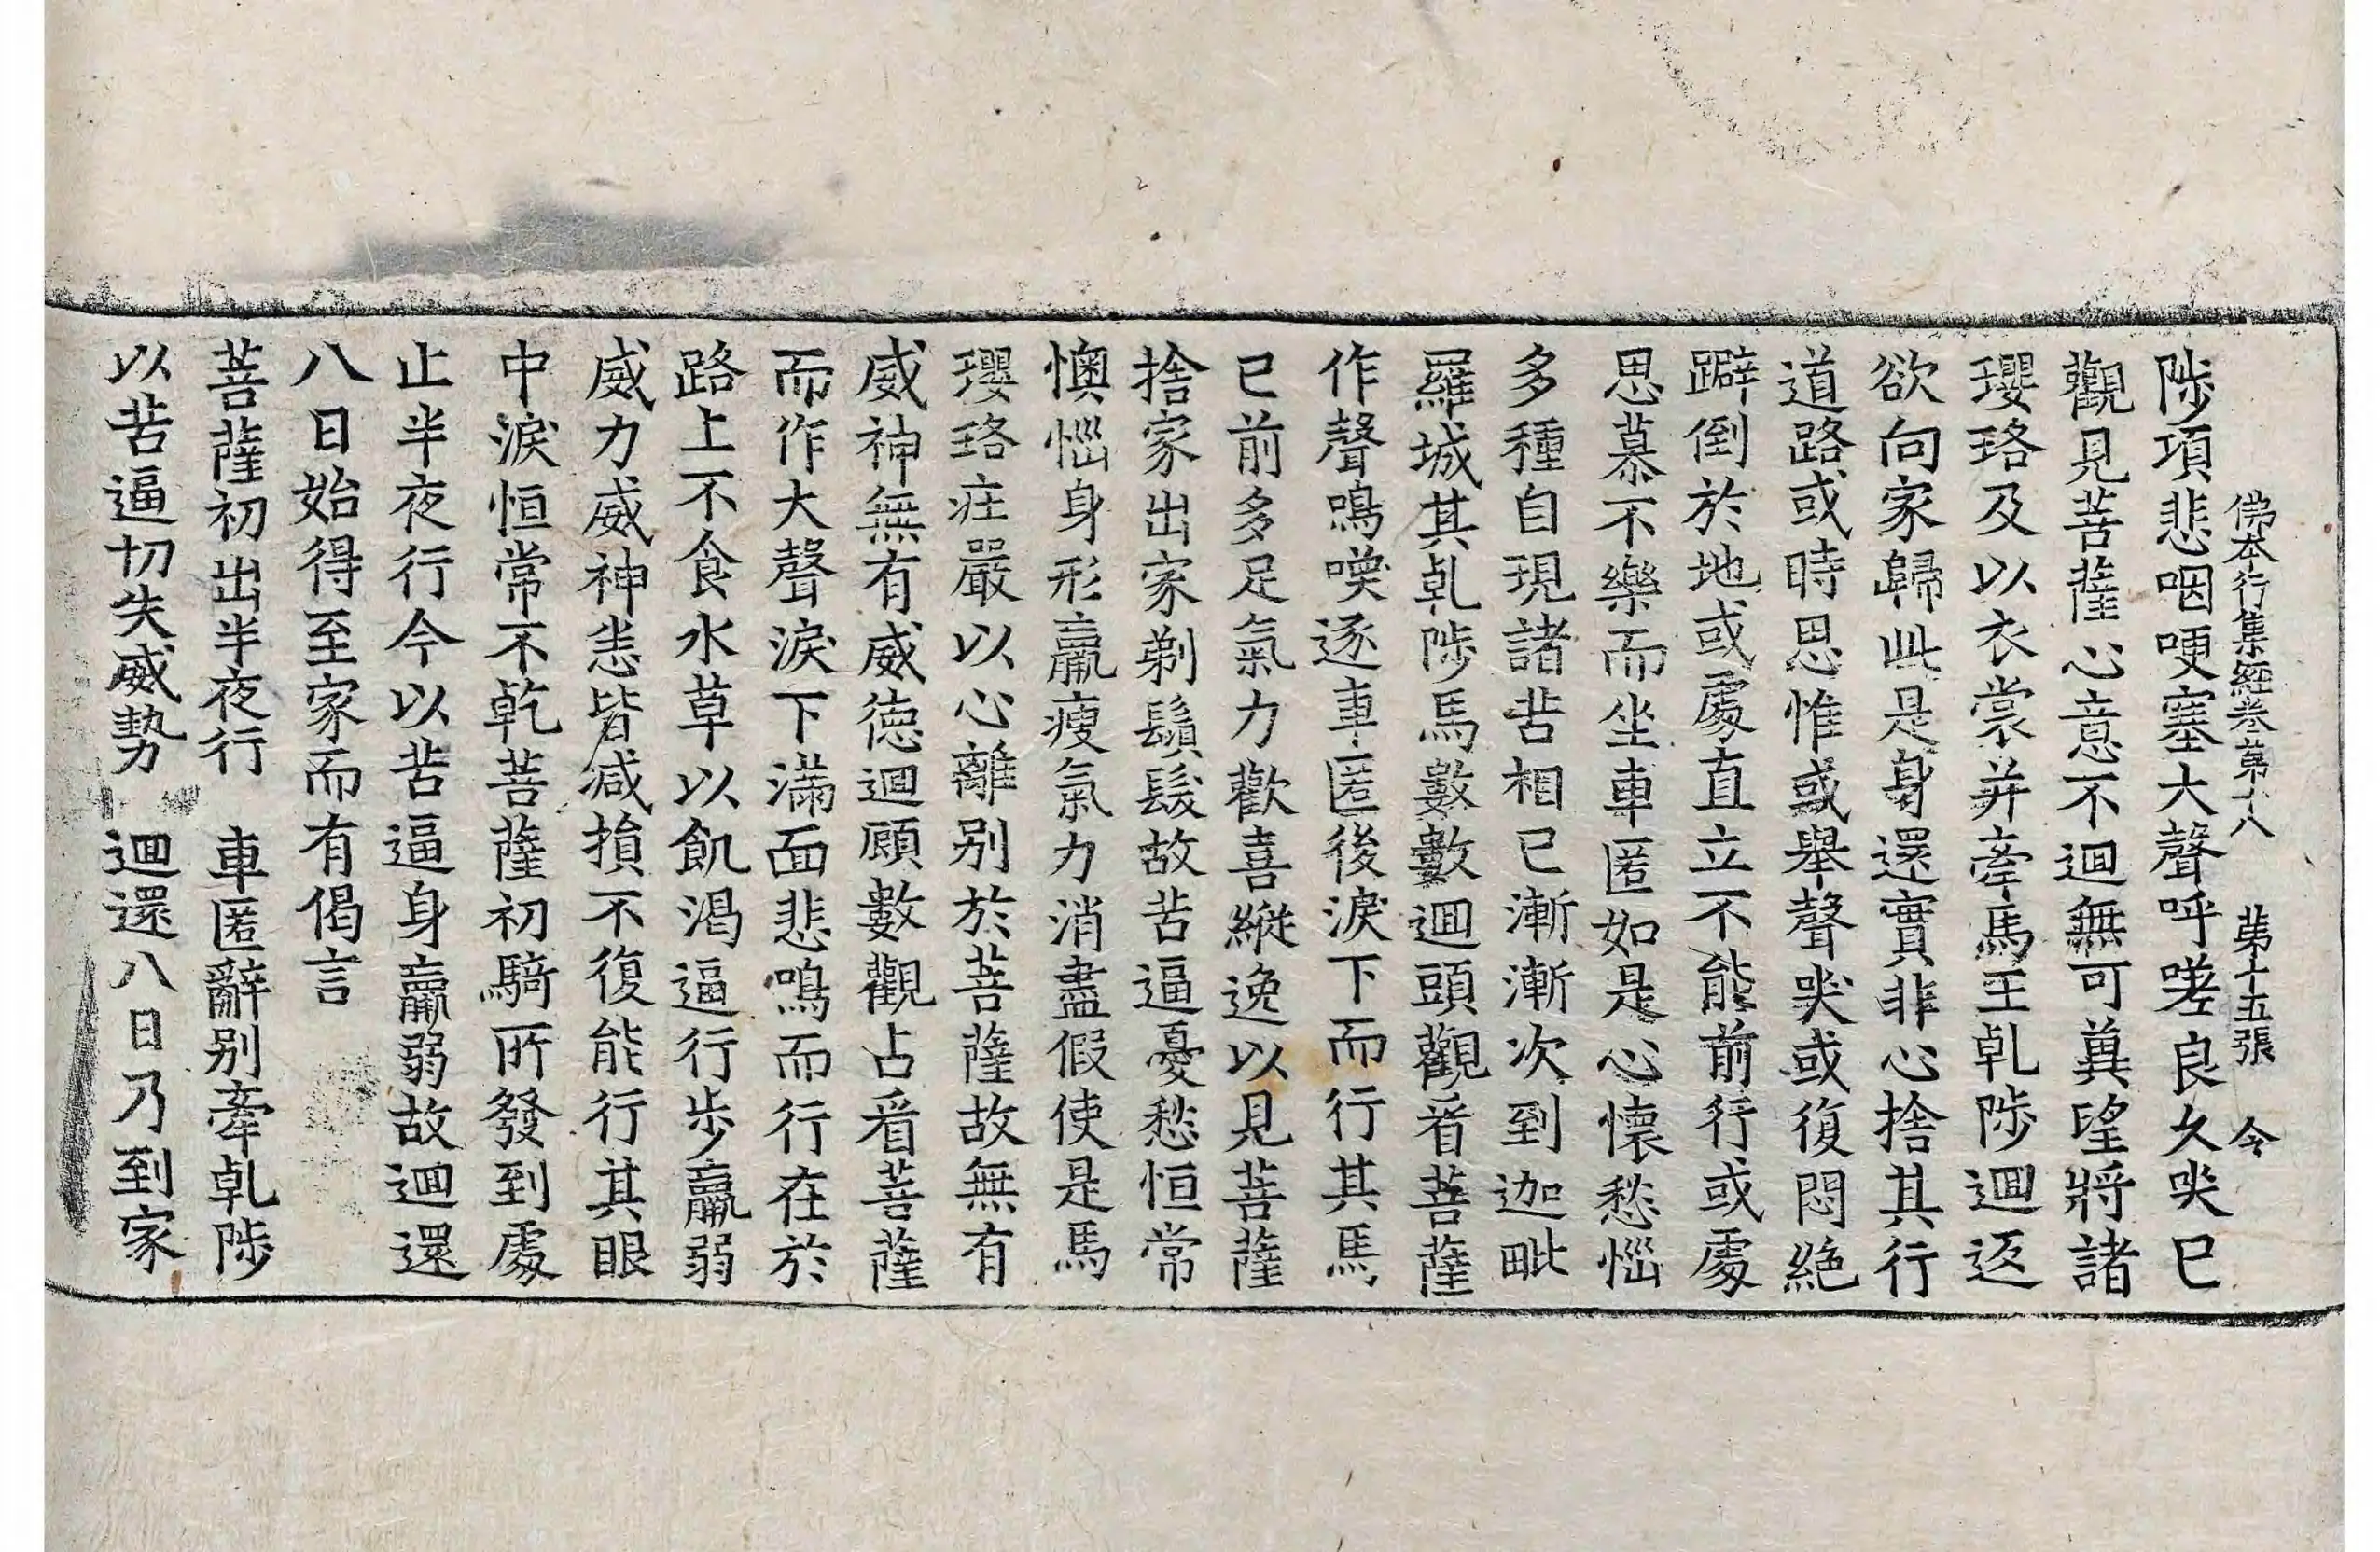 佛本行集經卷第十八 苐十五張 今
陟項悲咽哽塞大聲呼嗟良久哭已
觀見菩薩心意不迴無可兾望將諸
瓔珞及以衣裳并牽馬王乹陟迴返
欲向家歸此是身還實非心捨其行
道路或時思惟或舉聲哭或復悶絕
躃倒於地或處直立不能前行或處
思慕不樂而坐車匿如是心懷愁惱
多種自現諸苦相已漸漸次到迦毗
羅城其乹陟馬數數迴頭觀看菩薩
作聲鳴喚逐車匿後淚下而行其馬
已前多足氣力歡喜縱逸以見菩薩
捨家出家剃鬚髮故苦逼憂愁恒常
懊惱身形羸瘦氣力消盡假使是馬
瓔珞莊嚴以心離别於菩薩故無有
威神無有威德迴顧數觀占看菩薩
而作大聲淚下滿面悲鳴而行在於
路上不食水草以飢渴逼行步羸弱
威力威神恙皆減損不復能行其眼
中淚恒常不乾菩薩初騎所發到處
止半夜行今以苦逼身羸弱故迴還
八日始得至家而有偈言
菩薩初出半夜行 車匿辭别牽乹陟
以苦逼切失威勢 迴還八日乃到家